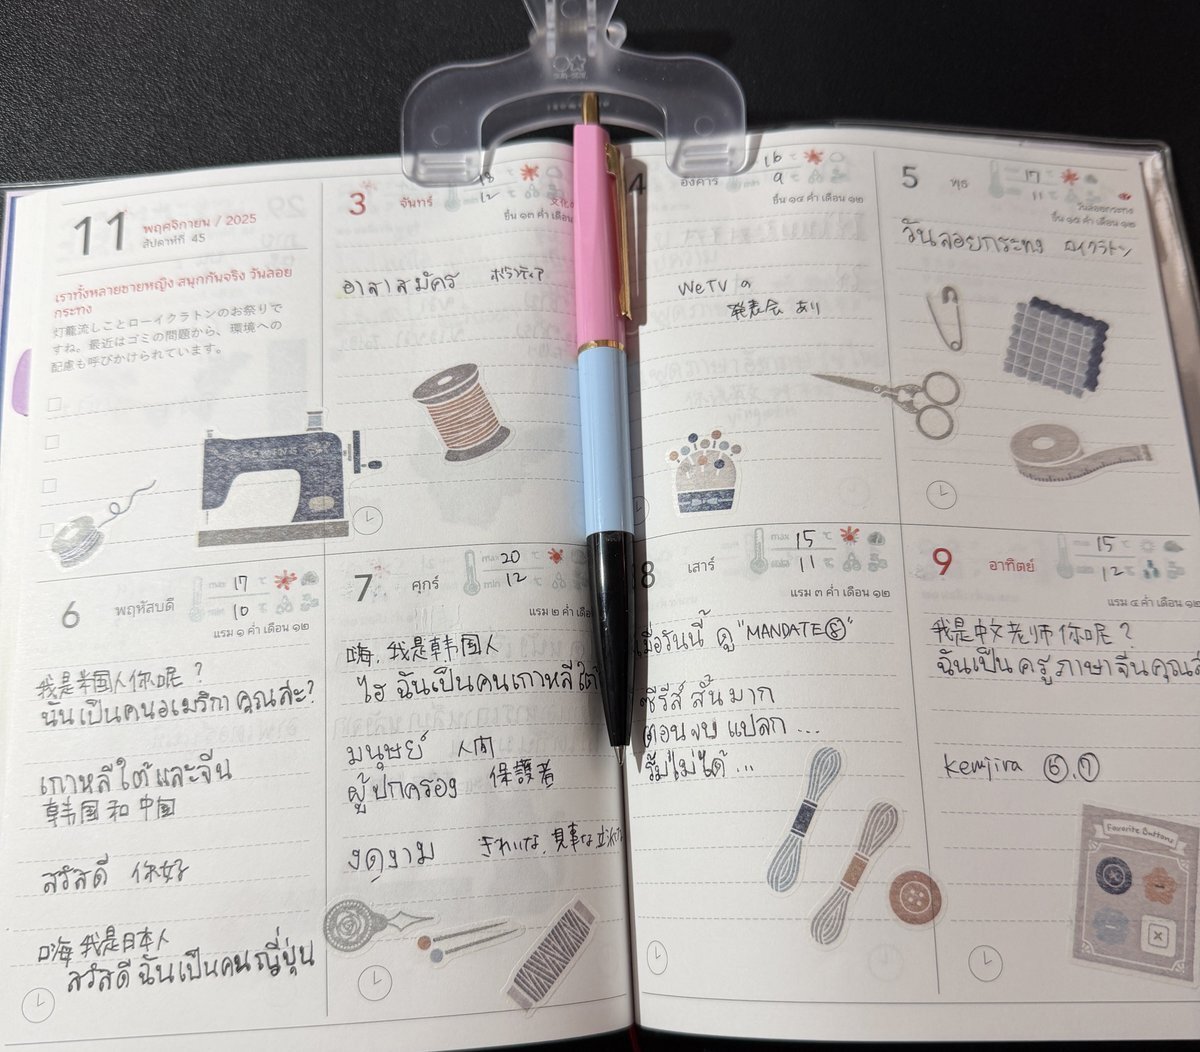 11
พฤศจิกายน / 2025
สัปดาห์ที่ 45
เราทั้งหลายชายหญิง สนุกกันจริง วันลอย
กระทง
灯籠流しことローイクラトンのお祭りで
すね。最近はゴミの問題から、環境への
配慮も呼びかけられています。
SEWING
3
จันทร์
18
12
ขึ้น ๑๓ ค่ำ เดือน ๑๒
อาสาสมัคร
4
อังคาร
16
9
ขึ้น ๑๔ ค่ำ เดือน ๑๒
WeTV の
発表会 あり
5
พุธ
17
11
วันลอยกระทง
ขึ้น ๑๕ ค่ำ เดือน ๑๒
วันลอยกระทง ロイクラトン
6
พฤหัสบดี
max 17 ℃
min 10 ℃
แรม ๑ ค่ำ เดือน ๑๒
我是美国人你呢？
ฉันเป็นคนอเมริกา คุณล่ะ?
เกาหลีใต้และจีน
韩国和中国
สวัสดี 你好
嗨 我是日本人
สวัสดี ฉันเป็นคนญี่ปุ่น
7
ศุกร์
max 20 ℃
min 12 ℃
แรม ๒ ค่ำ เดือน
嗨，我是韩国人
ไฮ ฉันเป็นคนเกาหลีใต้
มนุษย์ 人間
ผู้ปกครอง 保護者
งดงาม きれいな、見事な
8
เสาร์
max 15 ℃
11 ℃
แรม ๓ ค่ำ เดือน ๑๒
เมื่อวันนี้ ดู "MANDATE⑧"
ซีรีส์ สั้น มาก
ตอนจบ แปลก ...
9
อาทิตย์
max 15 ℃
12 ℃
แรม ๔ ค่ำ เดือน ๑๒
我是中文老师 你呢？
ฉันเป็น ครู ภาษา จีน คุณล่
Kemjira ⑥,⑦
Favorite Buttons